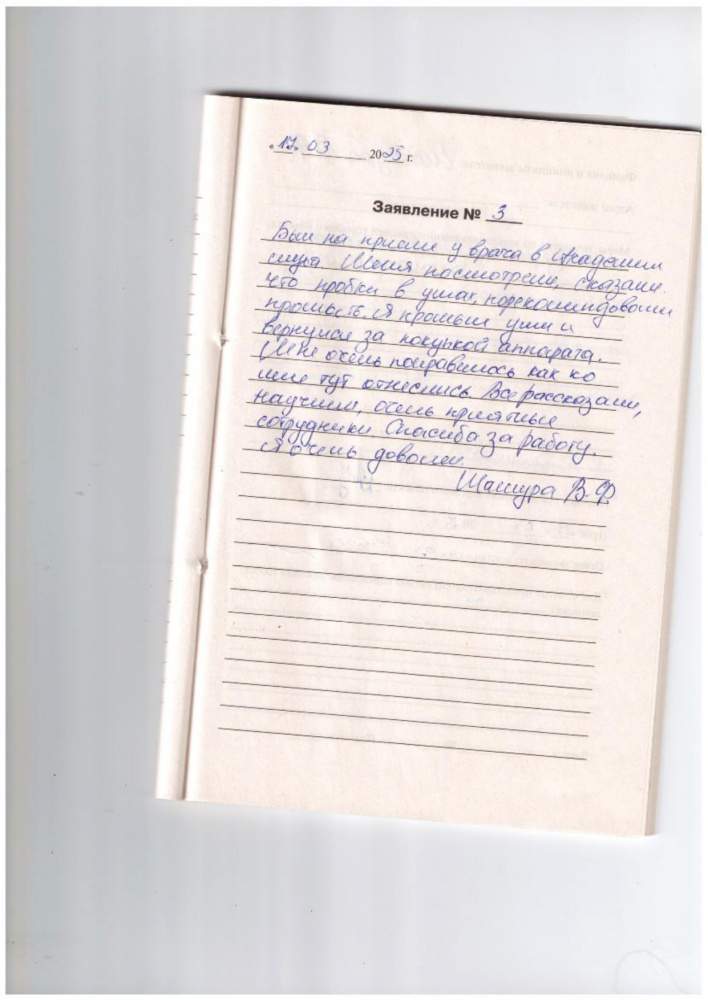 "17" 03 2025 г.
Заявление № 3
Был на приеме у врача в Академии
слуха Меня посмотрели, сказали
что пробки в ушах, порекомендовали
промыть. Я промыл уши и
вернулся за покупкой аппарата.
Мне очень понравилось как ко
мне тут отнеслись Все рассказали,
научили, очень приятные
сотрудники Спасиба за работу.
Я очень доволен
В.Ф